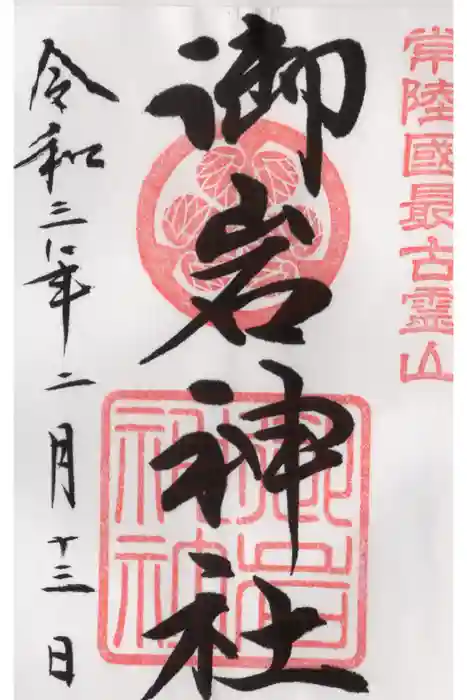 常陸國最古霊山
御岩神社
令和三年二月十三日
御岩神社